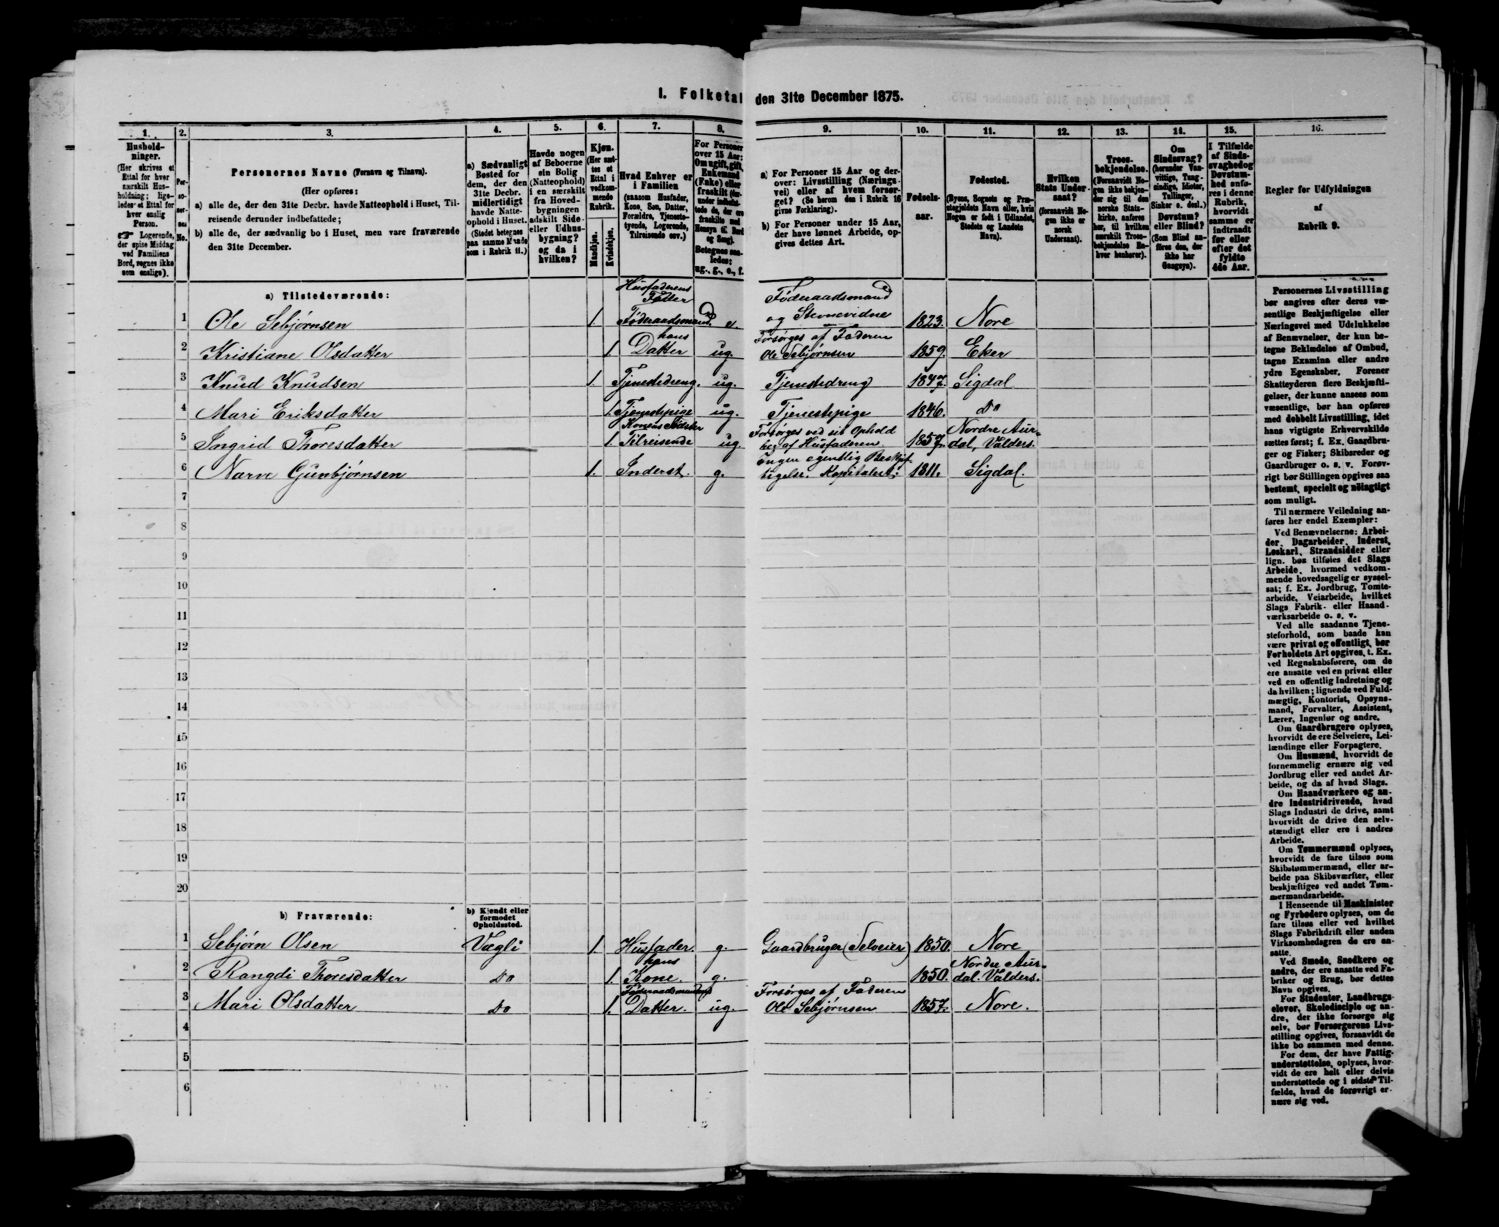 I. Folketal den 31te December 1875.
1. 2. 3. 4. 5. 6. 7. 8. 9. 10. 11. 12. 13. 14. 15. 16.
Husholdninger.
(Her skrives et Ettal for hver særskilt Husholdning; ligeledes et Ettal for hver enslig Person.
☞ Logerende, der spise Middag ved Familiens Bord, regnes ikke som enslige).
Personernes No.
Personernes Navne (Fornavn og Tilnavn).
(Her opføres:
a) alle de, der den 31te Decbr. havde Natteophold i Huset, Tilreisende derunder indbefattede;
b) alle de, der sædvanlig bo i Huset, men vare fraværende den 31te December.
a) Sædvanligt Bosted for dem, der den 31te Decbr. midlertidigt havde Natteophold i Huset.
(Stedet betegnes paa samme Maade som i Rubrik 11.)
Havde nogen af Beboerne sin Bolig (Natteophold) i en særskilt fra Hovedbygningen adskilt Side- eller Udhusbygning? og da i hvilken?
Kjøn.
(Her sættes et Ettal i vedkommende Rubrik.
Mandkjøn.
Kvindekjøn.
Hvad Enhver er i Familien
(saasom Husfader, Kone, Søn, Datter, Forældre, Tjenestetyende, Logerende, Tilreisende osv.)
For Personer over 15 Aar: Om ugift, gift, Enkemand (Enke) eller fraskilt
Betegnes saaledes: ug., g., e., f.
a) For Personer 15 Aar og derover: Livsstilling (Næringsvei) eller af hvem forsørget? (Se herom den i Rubrik 16 givne Forklaring).
b) For Personer under 15 Aar, der have lønnet Arbeide, opgives dettes Art.
Fødselsaar.
Fødested.
(Byens, Sognets og Præstegjeldets Navn eller, hvis Nogen er født i Udlandet, Stedets og Landets Navn).
Hvilken Stats Undersaat?
(forsaavidt Nogen ikke er norsk Undersaat).
Troesbekjendelse.
(Forsaavidt Nogen ikke bekjender sig til den norske Statskirke, anføres her, til hvilken særskilt Troesbekjendelse Enhver henhører).
Om Sindssvag?
(herunder Vanvittige, Tungsindige, Idioter, Tullinger, Sinker o. desl.)
Døvstum? eller Blind?
(Som Blind anføres den, der ikke har Gangsyn).
I Tilfælde af Sindssvaghed og Døvstumhed anføres i denne Rubrik, hvorvidt samme er indtraadt før eller efter det fyldte 4de Aar.
Regler for Udfyldningen af Rubrik 9.
a) Tilstedeværende:
1 Ole Sebjørnsen 1. Husfaderens Fader Føderaadsmand e. Føderaadsmand og Stevnevidne 1823. Nore
2 Kristiane Olsdatter 1. hans Datter ug. Forsørges af Faderen Ole Sebjørnsen 1859. Eker
3 Knud Knudsen 1. Tjenestedreng. ug. Tjenestedreng 1847. Sigdal
4 Mari Eriksdatter 1. Tjenestepige ug. Tjenestepige 1846. Do
5 Ingrid Thoresdatter 1. Konens Søster Tilreisende ug. Forsørges ved sit Ophold her af Husfaderen 1857. Nordre Aurdal, Valders.
6 Narve Gunbjørnsen 1. Inderst. g. Ingen egentlig Beskjæftigelse. Kapitalert: 1811. Sigdal.
7
8
9
10
11
12
13
14
15
16
17
18
19
20
b) Fraværende:
b) Kjendt eller formodet Opholdssted.
1 Sebjørn Olsen Vægli 1. Husfader. g. Gaardbruger (Selveier) 1850. Nore
2 Rangdi Thoresdatter Do 1. hans Kone g. 1850. Nordre Aurdal. Valders.
3 Mari Olsdatter Do 1. Føderaadsmandens Datter. ug. Forsørges af Faderen Ole Sebjørnsen 1857. Nore.
4
5
6
Personernes Livsstilling
bør angives efter deres væsentlige Beskjæftigelse eller
Næringsvei med Udelukkelse
af Benævnelser, der kun betegne Beklædelse af Ombud,
tagne Examina eller andre
ydre Egenskaber. Forener
Skatteyderen flere Beskjæftigelser, der kunne ansees som
væsentlige, bør han opføres
med dobbelt Livsstilling, idet
hans vigtigste Erhvervskilde
sættes først; f. Ex. Gaardbruger og Fisker; Skibsreder og
Gaardbruger o. s. v. Forøvrigt bør Stillingen opgives saa
bestemt, specielt og nøiagtigt
som muligt.
Til nærmere Veiledning anføres her endel Exempler:
Ved Benævnelserne: Arbeider, Dagarbeider, Inderst,
Løskarl, Strandsidder eller
lign. bør tilføies det Slags
Arbeide, hvormed vedkommende hovedsagelig er sysselsat; f. Ex. Jordbrug, Tomtearbeide, Veiarbeide, hvilket
Slags Fabrik- eller Haandværksarbeide o. s. v.
Ved alle saadanne Tjenesteforhold, som baade kan
være privat og offentligt, bør
Forholdets Art opgives, t. Ex.
ved Regnskabsførere, om de
ere ansatte ved en privat eller
ved en offentlig Indretning og
da hvilken; lignende ved Fuldmægtig, Kontorist, Opsynsmand, Forvalter, Assistent,
Lærer, Ingeniør og andre.
Om Gaardbrugere oplyses,
hvorvidt de ere Selveiere, Leilændinge eller Forpagtere.
Om Husmænd, hvorvidt de
fornemmelig ernære sig ved
Jordbrug eller ved andet Arbeide, og da af hvad Slags.
Om Haandværkere og andre Industridrivende, hvad
Slags Industri de drive, samt
hvorvidt de drive den selvstændigt eller ere i andres
Arbeide.
Om Tømmermænd oplyses,
hvorvidt de fare tilsøs som
Skibstømmermænd, eller arbeide paa Skibsværfter, eller
beskjæftiges ved andet Tømmermandsarbeide.
I Henseende til Maskinister
og Fyrbødere oplyses, om de
fare tilsøs eller ved hvad
Slags Fabrikdrift eller anden
Virksomhedsgren de ere ansatte.
Ved Smede, Snedkere og
andre, der ere ansatte ved Fabriker og Brug, bør dettes
Navn opgives.
For Studenter, Landbrugselever, Skoledisciple og andre, der ikke forsørge sig
selv, bør Forsørgerens Livsstilling opgives, forsaavidt de
ikke bo sammen med denne.
For dem, der have Fattigunderstøttelse, oplyses, hvorvidt de ere helt eller delvis
understøttede og i sidste Tilfælde, hvad de forøvrigt ernære sig ved.